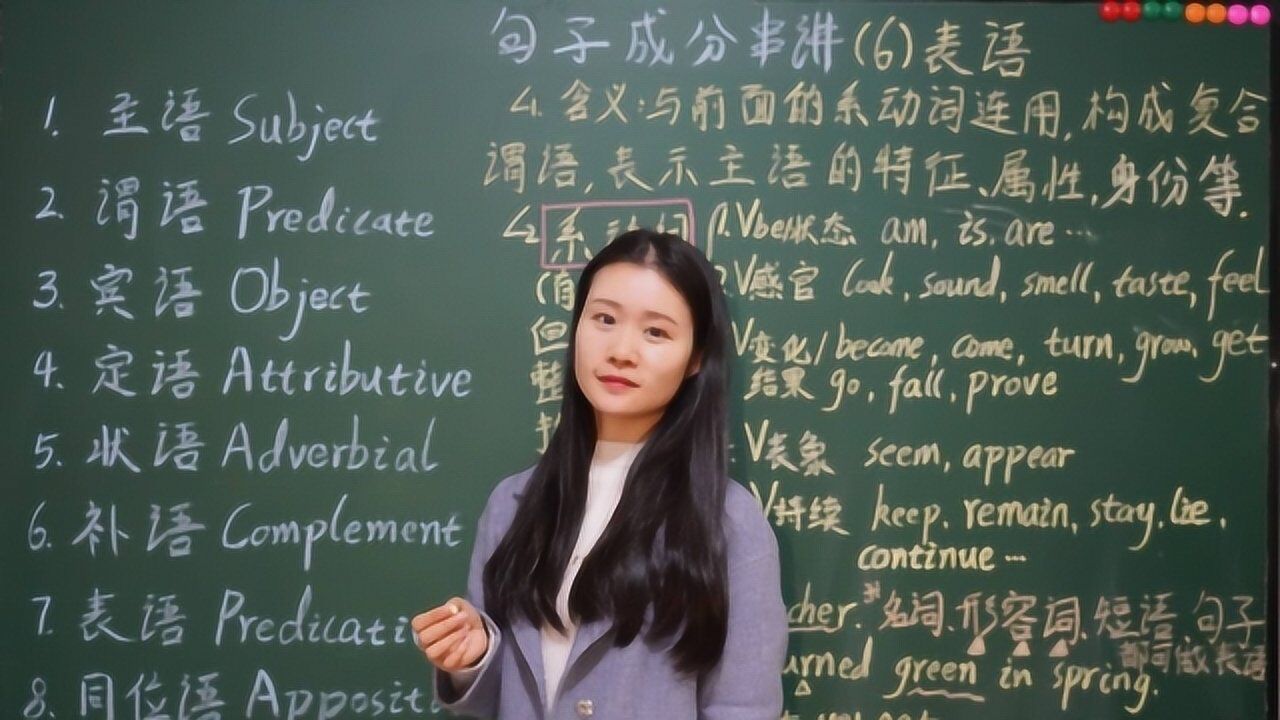 句子成分串讲(6)表语
1. 主语 Subject
2. 谓语 Predicate
3. 宾语 Object
4. 定语 Attributive
5. 状语 Adverbial
6. 补语 Complement
7. 表语 Predicati
8. 同位语 Appositi
4. 含义:与前面的系动词连用,构成复合
谓语,表示主语的特征、属性,身份等.
系动词
1. Vbe/状态 am, is. are …
2. V感官 look, sound, smell, taste, feel
V变化/ become, come, turn, grow, get
结果 go, fall, prove
V表象 seem, appear
V持续 keep. remain, stay. lie,
continue …
cher. 名词.形容词.短语 句子
都可做表语
urned green in spring.